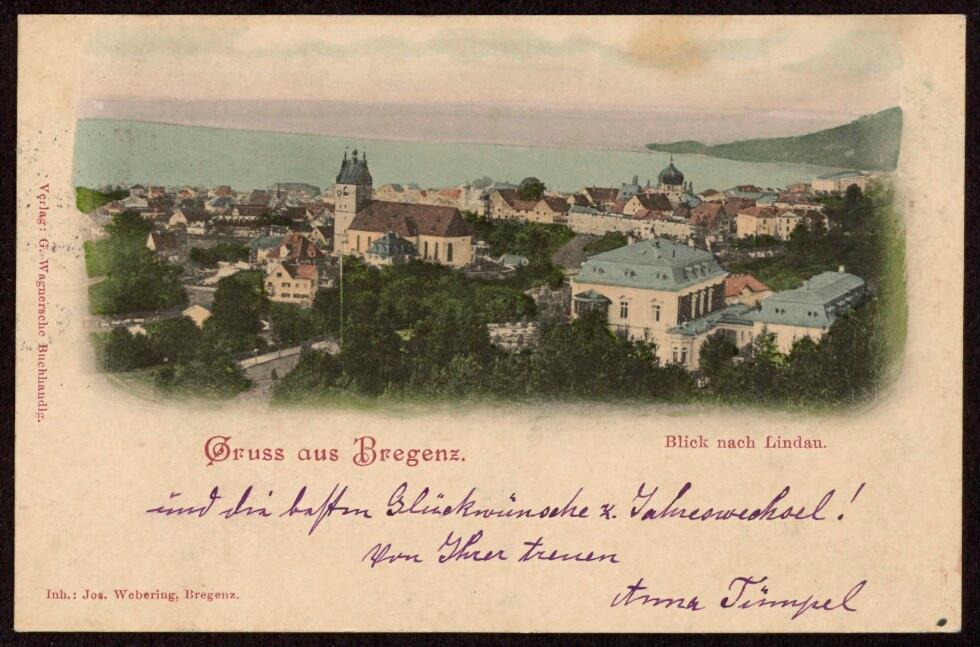 Verlag: G. Wagnersche Buchhandlg.
Gruss aus Bregenz.
Blick nach Lindau.
und die besten Glückwünsche z. Jahreswechsel!
Von Ihrer treuen
Anna Tümpel
Inh.: Jos. Webering, Bregenz.